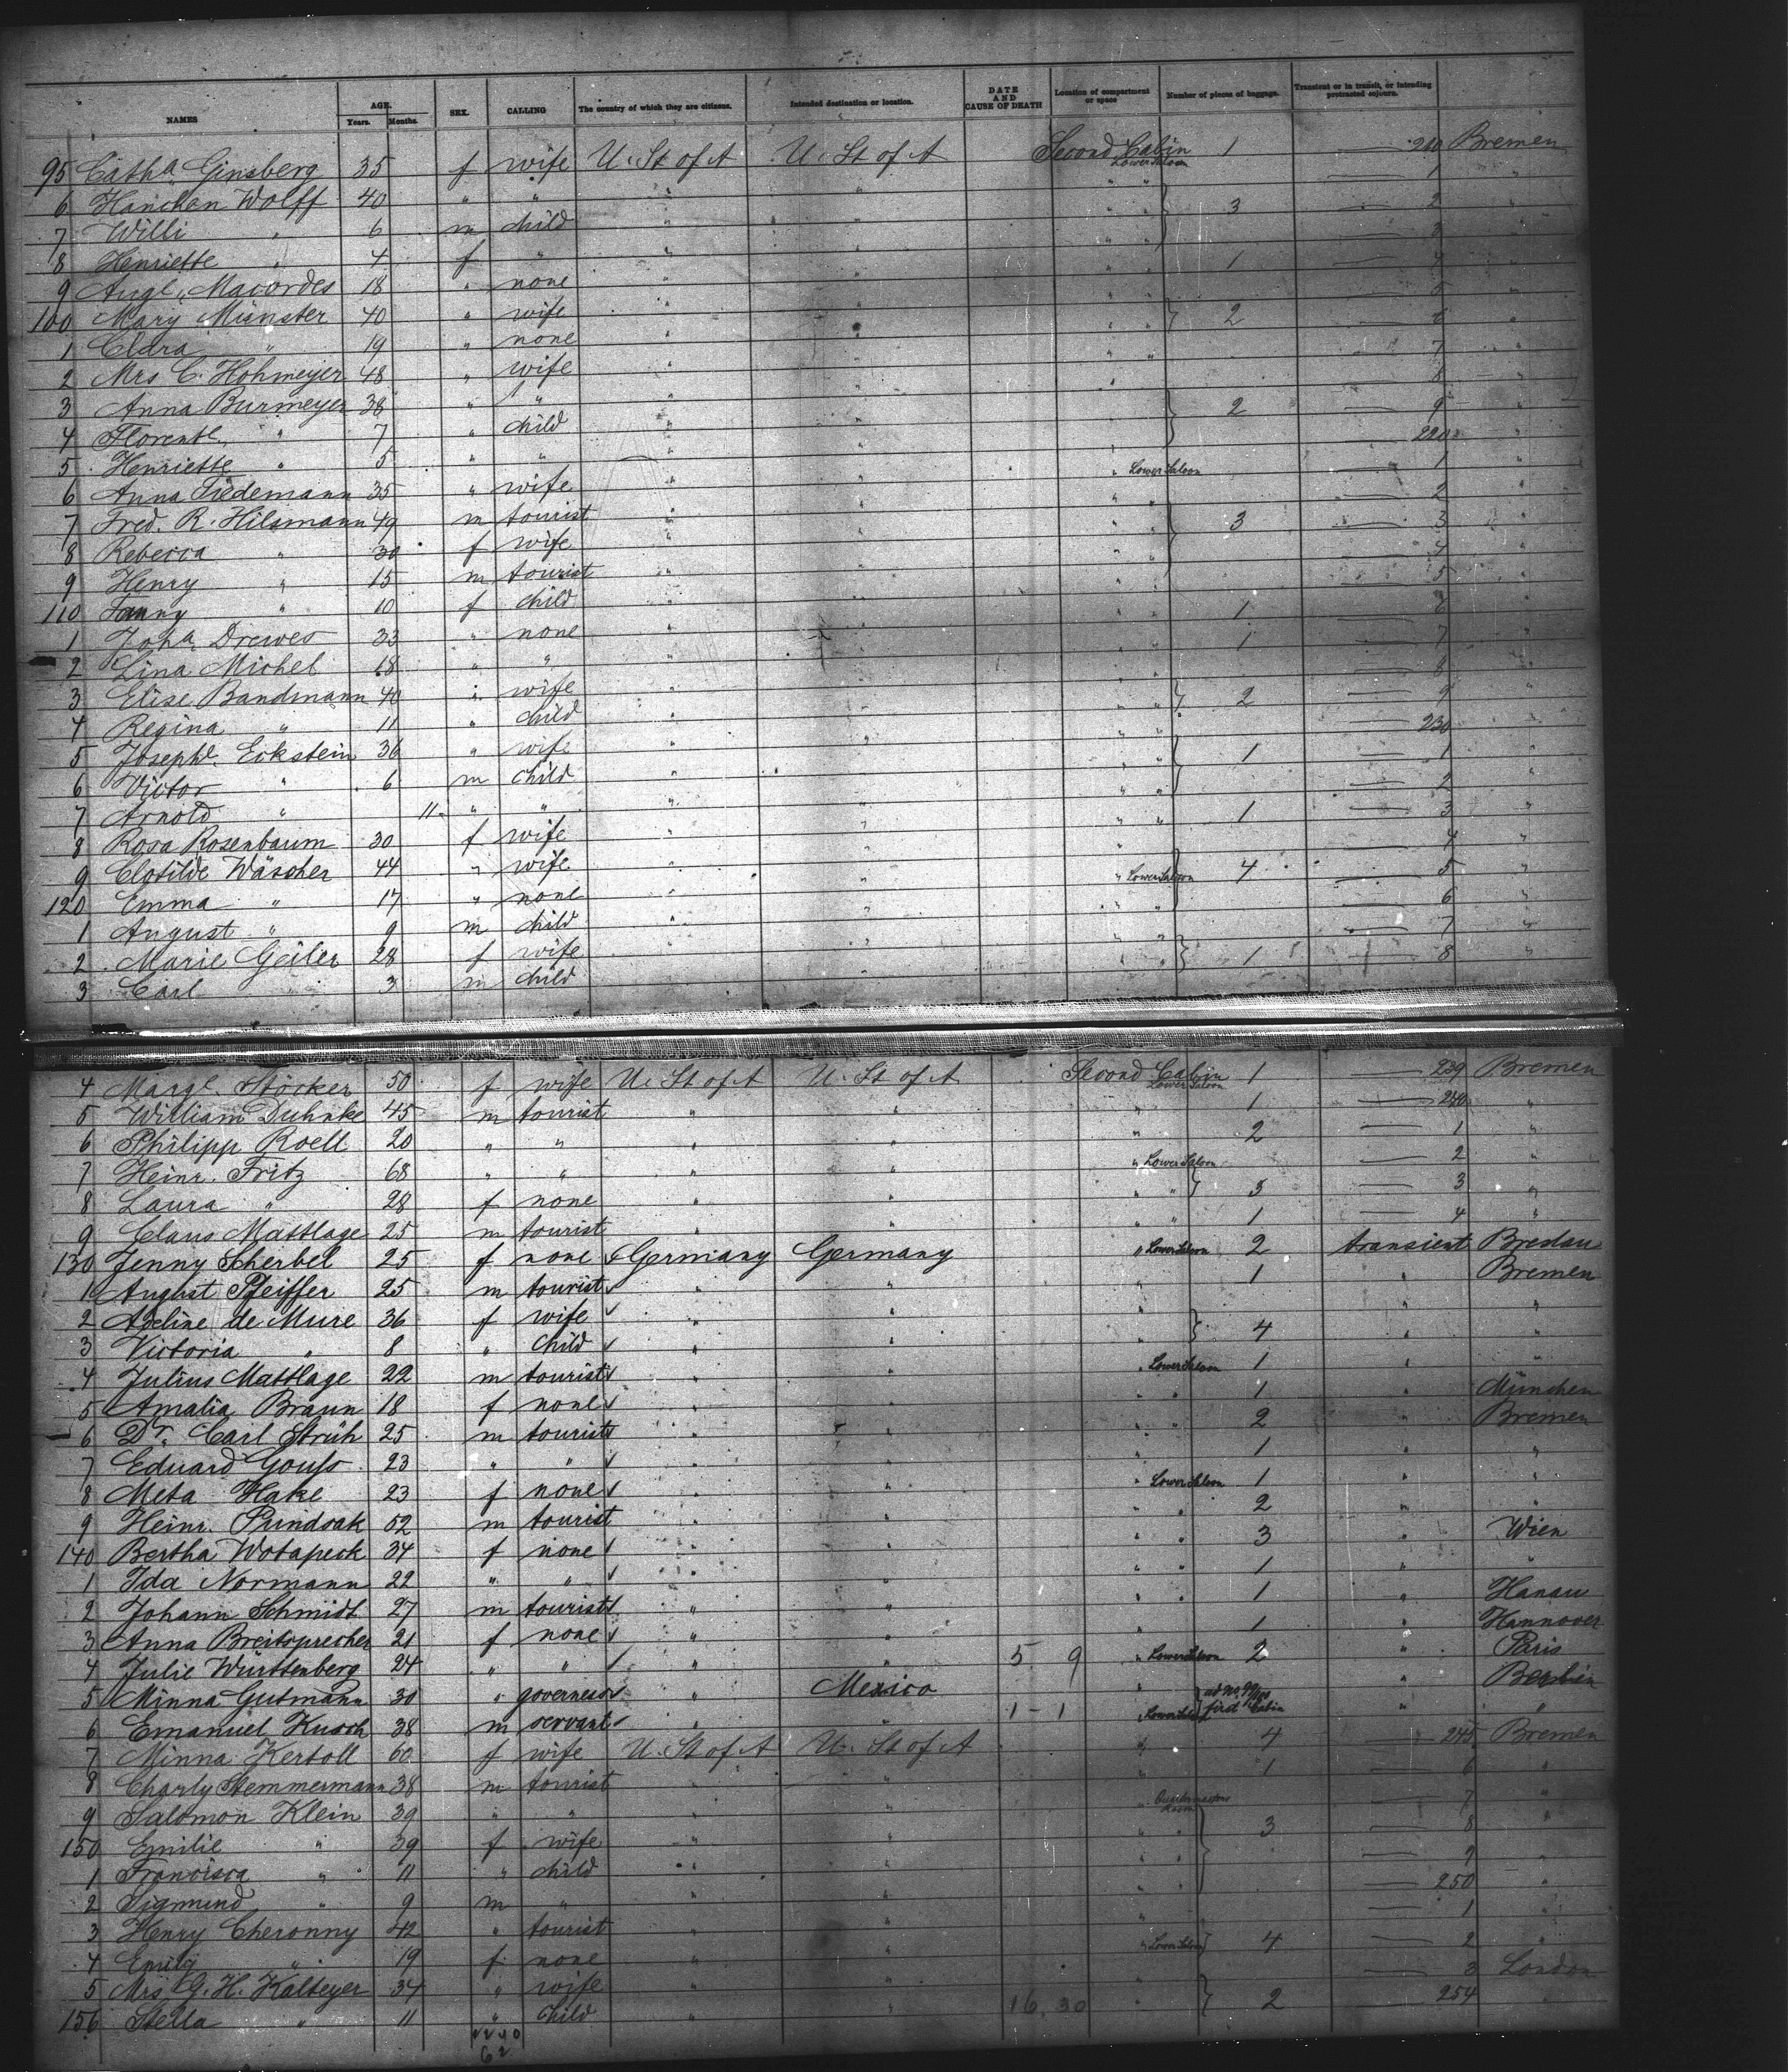 NAMES AGE. Years. Months. SEX. CALLING The country of which they are citizens. Intended destination or location. DATE AND CAUSE OF DEATH Location of compartment or space Number of pieces of baggage. Transient or in transit, or intending protracted sojourn.
95 Catha Ginsberg 35 f wife U. St of A U. St of A Second Cabin Lower Saloon 1 — 210 Bremen
6 Hanchen Wolff 40 " " " " " " — 1 "
7 Willi " 6 m child " " " " 3 — 2 "
8 Henriette " 4 f " " " " " — 3 "
9 Augl. Macordes 18 " none " " " " 1 — 4 "
100 Mary Münster 40 " wife " " " — 5 "
1 Clara " 19 " none " " " " 2 — 6 "
2 Mrs C. Hohmeyer 48 " wife " " " " — 7 "
3 Anna Burmeyer 38 " " " " " — 8 "
4 Florentl. " 7 " child " " 2 — 9 "
5 Henriette " 5 " " " " — 220 "
6 Anna Tiedemann 35 " wife " " " Lower Saloon — 1 "
7 Fred. R. Hilsmann 49 m tourist " " " " — 2 "
8 Rebecca " 30 f wife " " " " 3 — 3 "
9 Henry " 15 m tourist " " " " — 4 "
110 Fanny " 10 f child " " — 5 "
1 Joha. Drewes 33 " none " " " " 1 — 6 "
2 Lina Michel 18 " " " " " " 1 — 7 "
3 Elise Bandmann 40 " wife " " " " — 8 "
4 Regina " 11 " child " " " " 2 — 9 "
5 Josephl. Eckstein 36 " wife " " " " — 230 "
6 Victor " 6 m child " " " " 1 — 1 "
7 Arnold " 11 " " " " " " — 2 "
8 Rosa Rosenbaum 30 f wife " " " " 1 — 3 "
9 Clotilde Wäscher 44 " wife " " " — 4 "
120 Emma " 17 " none " " " Lower Saloon 4 — 5 "
1 August " 9 m child " " " " — 6 "
2 Marie Geiler 28 f wife " " " " — 7 "
3 Carl 3 m child " " " " 1 — 8 "
4 Margl. Stöcker 50 f wife U. St of A U. St of A Second Cabin Lower Saloon 1 — 239 Bremen
5 William Duhnke 45 m tourist " " " 1 — 240 "
6 Philipp Roell 20 " " " " " 2 — 1 "
7 Heinr. Fritz 68 " " " " " Lower Saloon — 2 "
8 Laura " 28 f none " " " " 3 — 3 "
9 Claus Mattlage 25 m tourist " " " " 1 — 4 "
130 Jenny Scherbel 25 f none Germany Germany " Lower Saloon 2 transient Breslau
1 August Pfeiffer 25 m tourist " " " 1 " Bremen
2 Adeline de Mure 36 f wife " " " " "
3 Victoria " 8 " child " " " 4 " "
4 Julius Mattlage 22 m tourist " " " Lower Saloon 1 " "
5 Amalia Braun 18 f none " " " " 1 " München
6 Dr. Carl Strüh 25 m tourist " " " " 2 " Bremen
7 Eduard 23 " " " " " " 1 " "
8 Meta Hake 23 f none " " " Lower Saloon 1 " "
9 Heinr. Pundsak 52 m tourist " " " " 2 " "
140 Bertha Wotapeck 34 f none " " " " 3 " Wien
1 Ida Normann 22 " " " " " " 1 " "
2 Johann Schmidt 27 m tourist " " " " 1 " Hanau
3 Anna Breitsprecher 21 f none " " " 1 " Hannover
4 Julie Württenberg 24 " " " " 5 9 " Lower Saloon 2 " Paris
5 Minna Gutmann 30 " governess " Mexico " ad No. 99/100 first Cabin " Berlin
6 Emanuel Kusch 38 m servant " " 1 - 1 " Lower Saloon " "
7 Minna Kertoll 60 f wife U. St of A U. St of A " 4 — 245 Bremen
8 Charly Stemmermann 38 m tourist " " " 1 — 6 "
9 Salomon Klein 39 " " " " " Quartermasters Room — 7 "
150 Emilie " 39 f wife " " " " 3 — 8 "
1 Francisca " 11 " child " " " " — 9 "
2 Sigmund " 9 m " " " " " — 250 "
3 Henry Cheronny 42 " tourist " " " " — 1 "
4 Emily " 19 f none " " " Lower Saloon 4 — 2 "
5 Mrs G. H. Kalteyer 34 " wife " " " — 3 London
156 Stella " 11 " child " " 16 30 " 2 — 254 "
62